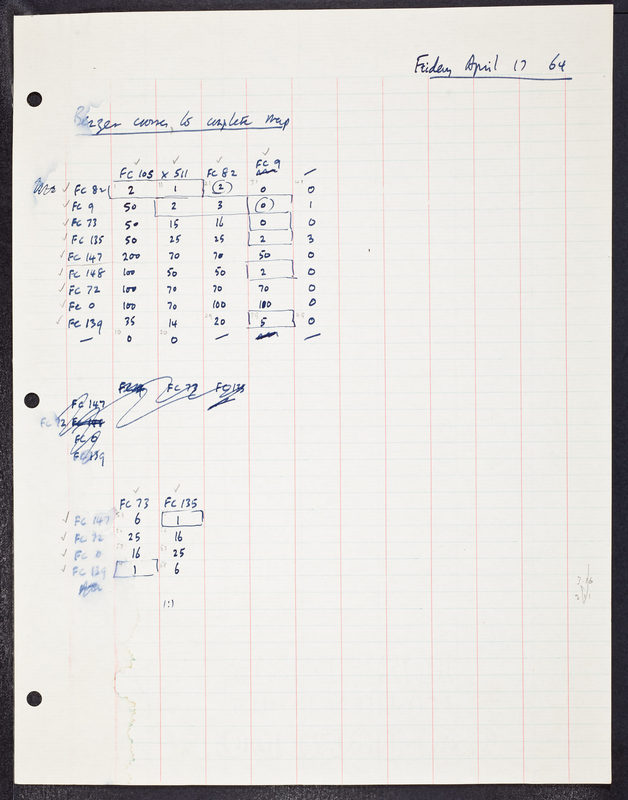 Friday April 17 64
Benzer crosses, to complete map
FC 105 x 511 FC 82 FC 9 —
FC 82 2 1 (2) 0 0
FC 9 50 2 3 (0) 1
FC 73 50 15 16 0 0
FC 135 50 25 25 2 3
FC 147 200 70 70 50 0
FC 148 100 50 50 2 0
FC 72 100 70 70 70 0
FC 0 100 70 100 100 0
FC 139 35 14 20 5 0
— 0 0 — —
FC 73 FC 135
FC 147
FC 72
FC 0
FC 139
FC 73 FC 135
FC 147 6 1
FC 72 25 16
FC 0 16 25
FC 139 1 6
1:1